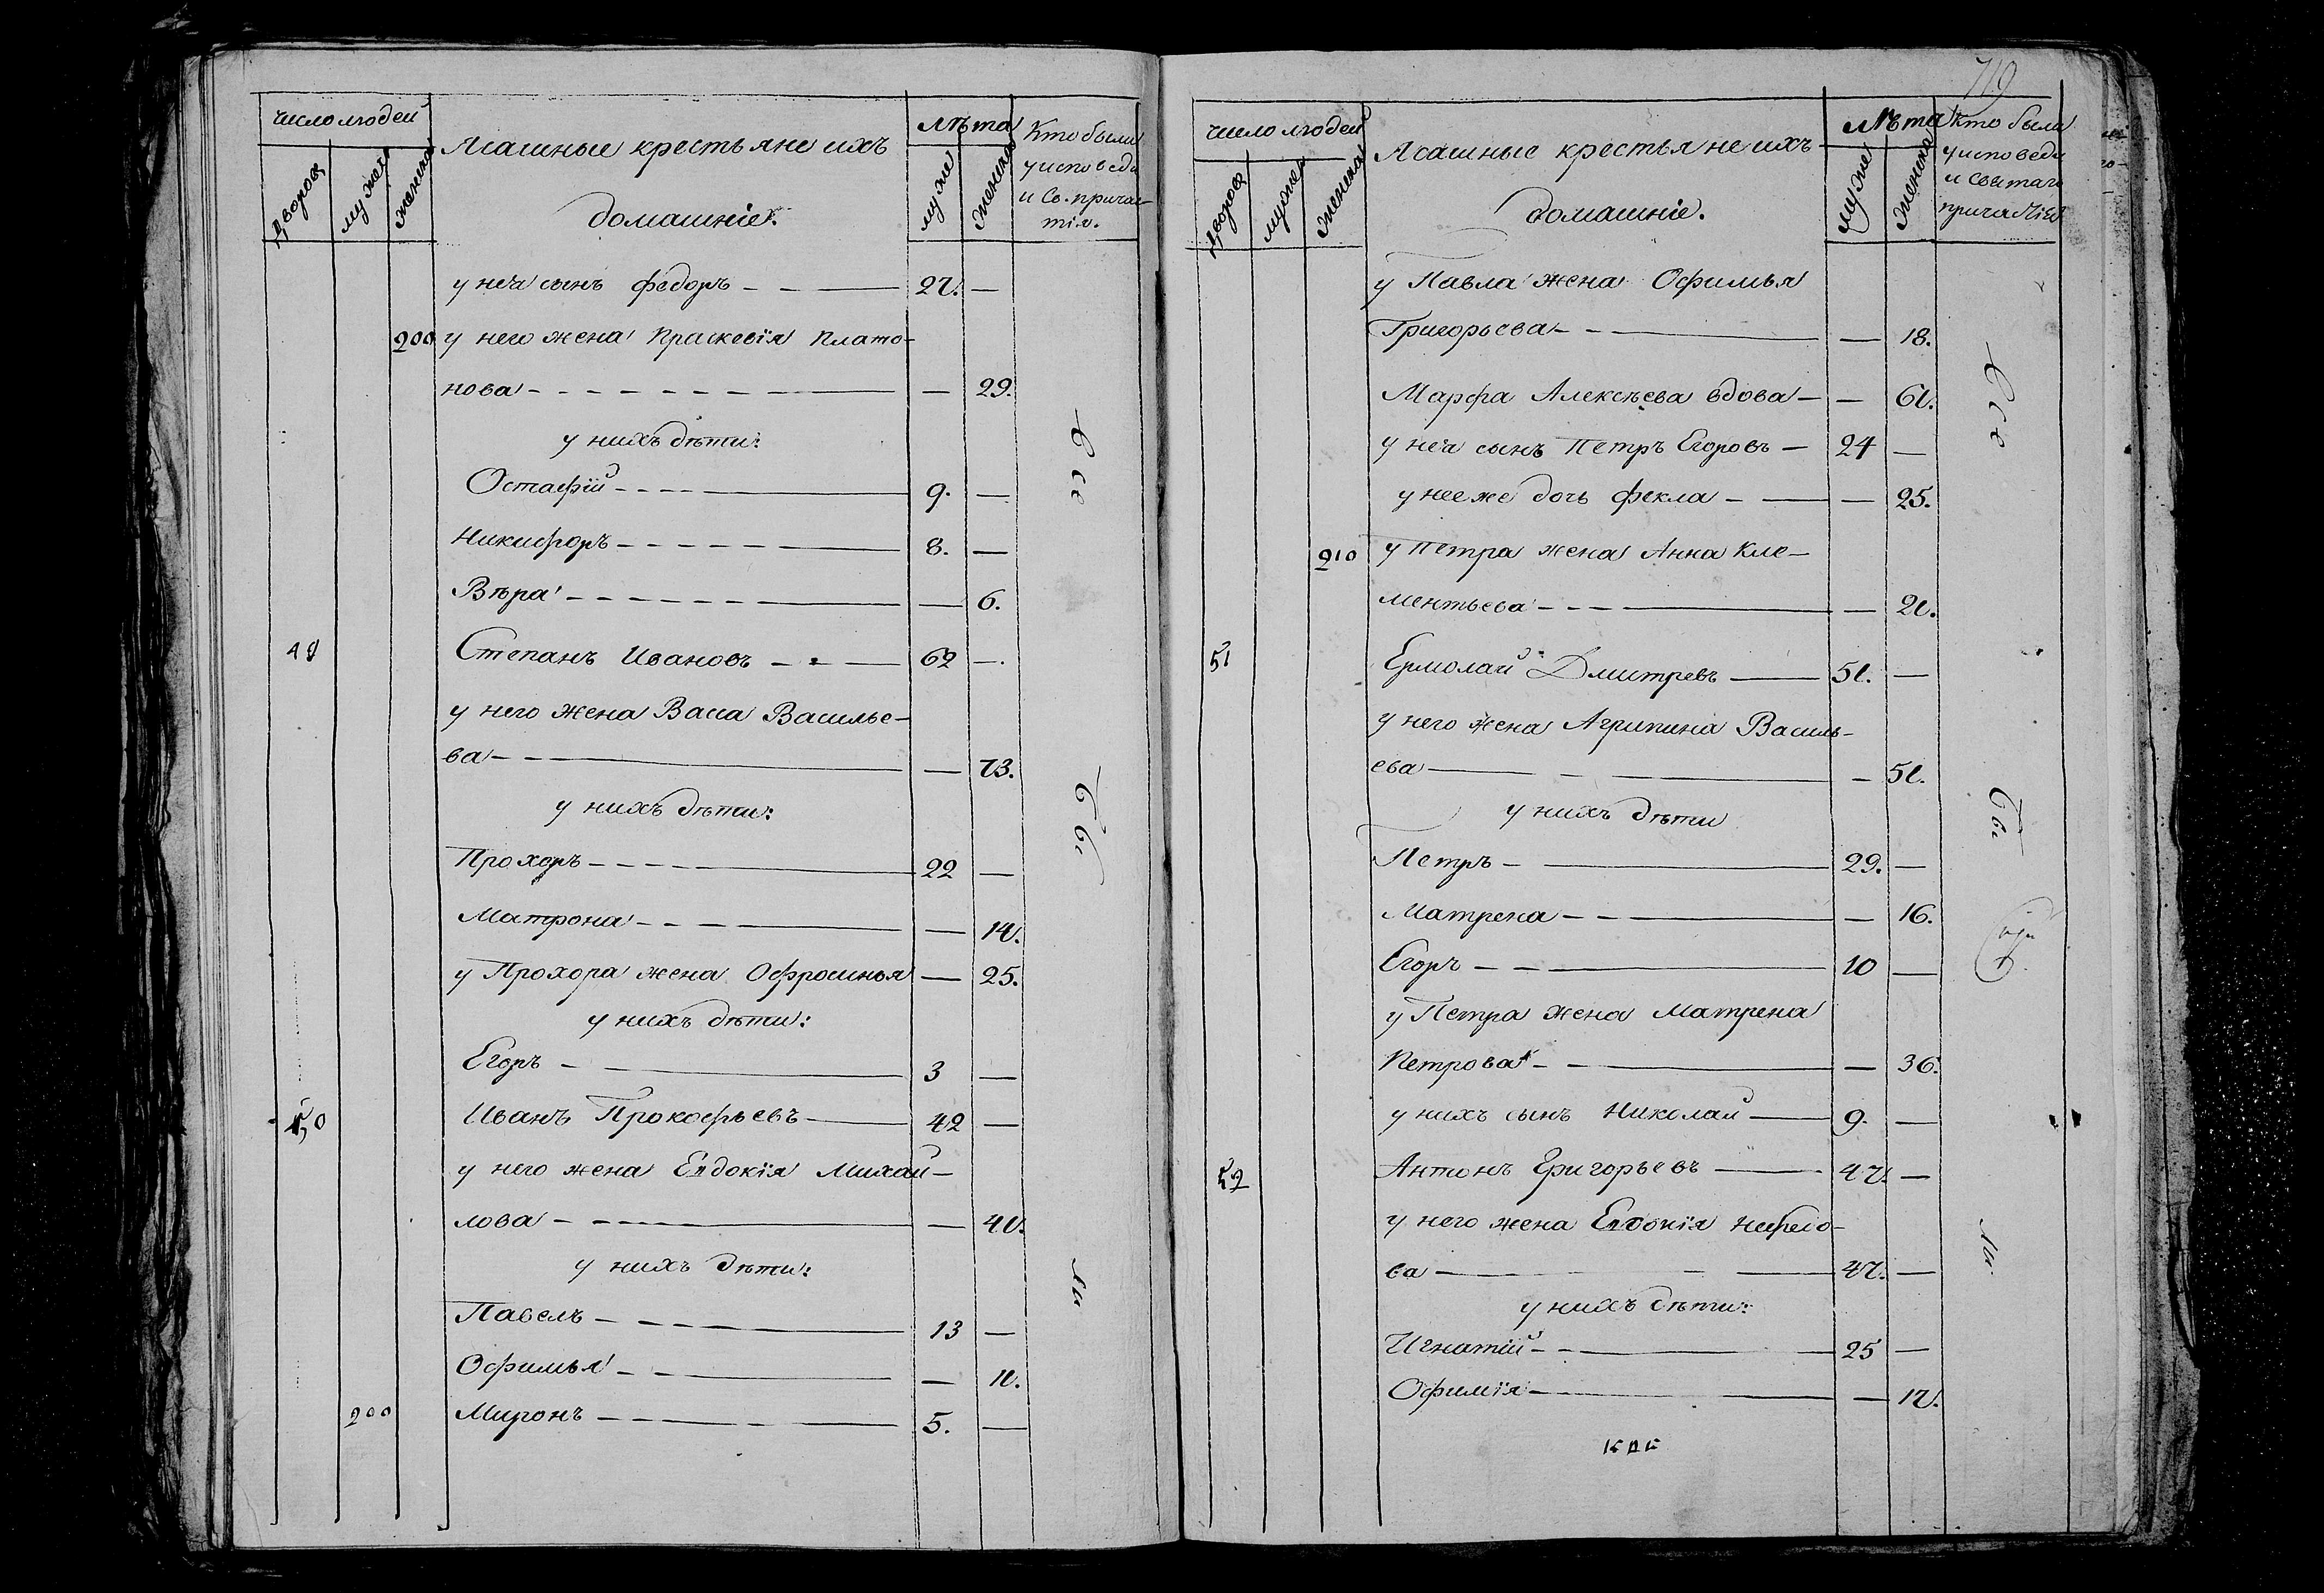 число людей
Ясашные крестьяне ихъ
домашніе.
лѣта
дворов
мужеск
женска
муже
женска
Кто были
у исповеди
и Св. причас-
тія.
у нея сынъ Федоръ - - — 27. —
200 у него жена Праскевія Плато-
нова - - - - — — 29.
у нихъ дѣти:
Остафій - - - — 9. —
Никифоръ - - - — 8. —
Вѣра - - - — — 6.
Степанъ Ивановъ - - — 62 —
у него жена Васса Василье-
ва - - — — 73.
у нихъ дѣти:
Прохоръ - - - — 22 —
Матрона - - - — — 14.
у Прохора жена Офросинья — 25.
у нихъ дѣти:
Егоръ - — 3 —
50 Иванъ Прокофьевъ — 42 —
у него жена Евдокія Михай-
лова - - - — — 41.
у нихъ дѣти:
Павелъ - - - — 13 —
Офимья - - — — 11.
200 Миронъ - - - — 5. —
Все
бы
ли
719
число людей
Ясашные крестьяне ихъ
домашніе.
лѣта
дворов
мужеск
женска
муже
женска
кто были
у исповеди
и Святаго
причастія
у Павла жена Офимья
Григорьева - - — — 18.
Марфа Алексѣева вдова — — 61.
у нея сынъ Петръ Егоровъ — 24 —
у нее же дочь Фекла - — — 25.
210 у Петра жена Анна Кле-
ментьева - - - — — 21.
51 Ермолай Дмитревъ — 51. —
у него жена Агрипина Василь-
ева — - — — 51.
у нихъ дѣти
Петръ - — 29. —
Матрена - - — — 16.
Егоръ - - — 10 —
у Петра жена Матрена
Петрова - - — — 36.
у нихъ сынъ Николай — 9. —
52 Антонъ Григорьевъ — 47. —
у него жена Евдокія
ва — - — 47. —
у нихъ дѣти:
Игнатій - - — 25 —
Офимія - — — 17.
Все
бы
ли